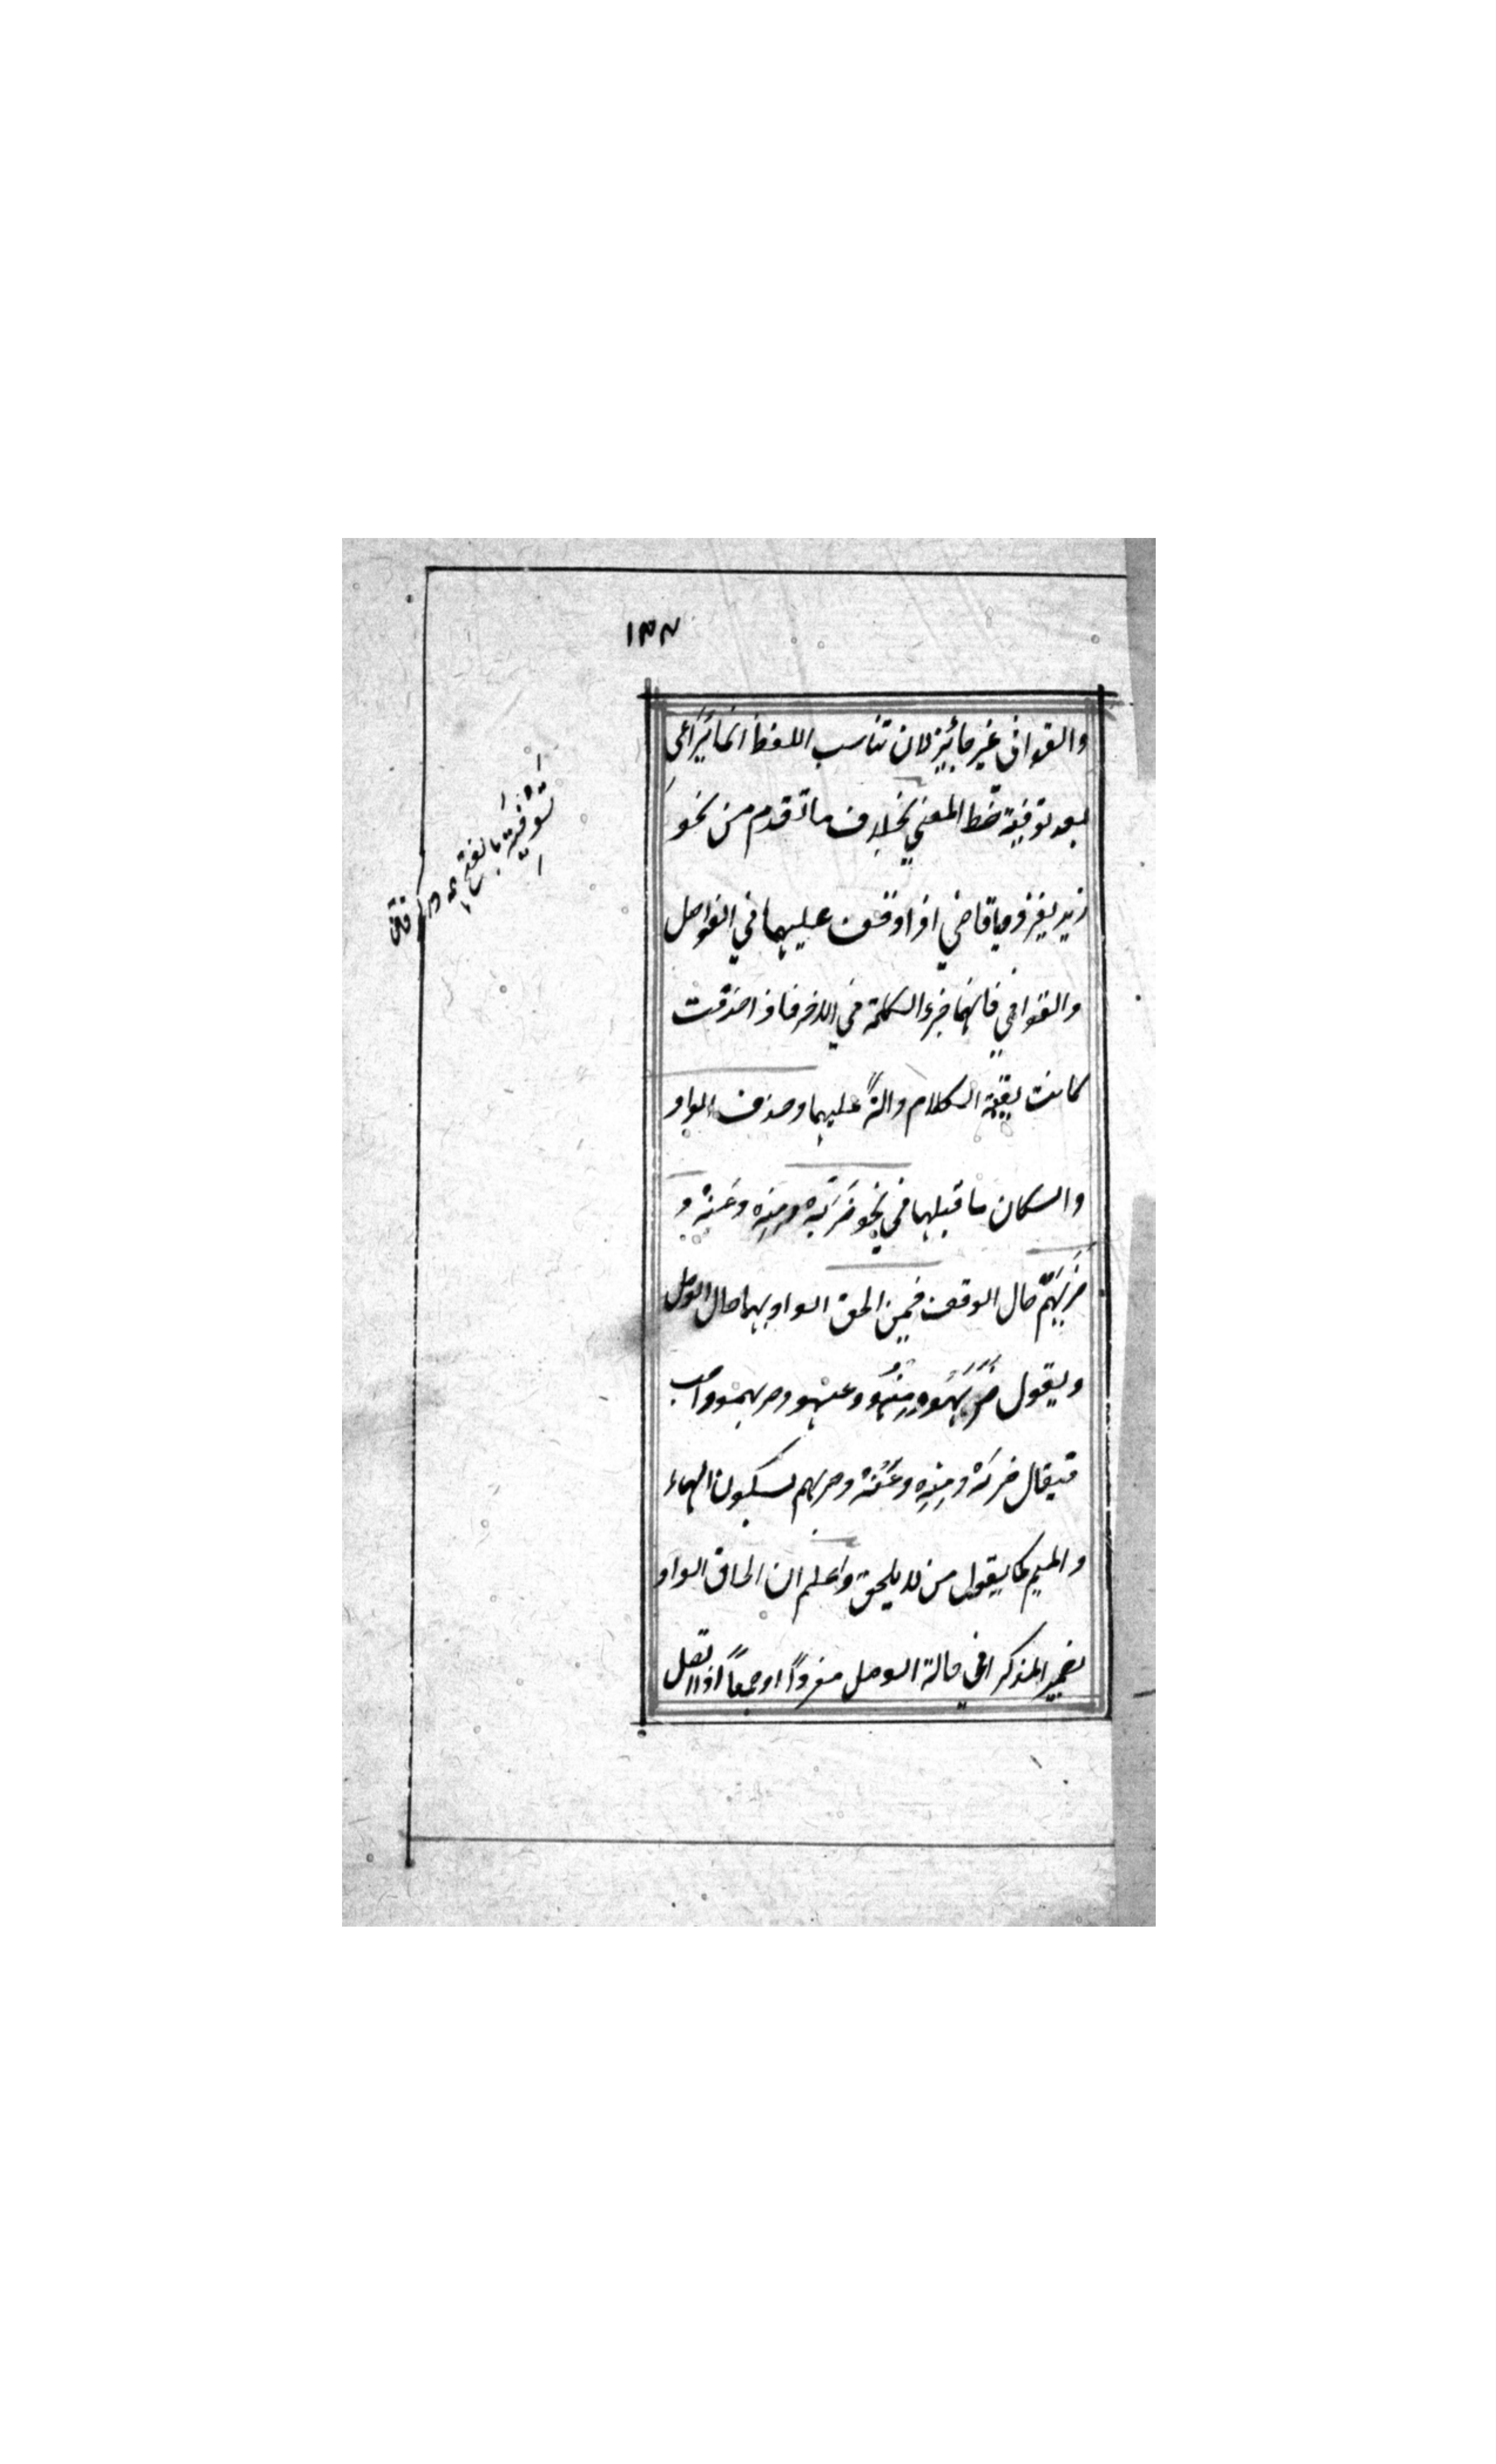 ١٣٧
والقوافى غير جائيز لان تناسب اللفظ انما يُرَاعى
بعد توفية حَظ المعني بخلاف ما تقدم من نحو
زيد يغزو ويا قاضي اذا وقف عليهما في الفواصل
والقوافي فانهما جزء الكلمة في الاخر فاذا حذفت
كانت بقية الكلام دالةً عليهما وحذف الواو
واسكان ما قبلها في نحو ضَرَبَهْ ومِنِهْ وعَنِهْ و
ضَرَبَهُمْ حال الوقف فيمن الحق الواو بهما حال الوصل
ويقول ضَرَبَهُو ومِنْهُو وعنهو وضربهمو واجب
فيقال ضربهْ ومِنِهْ وعَنْهْ وضربهم بسكون الهاء
والميم كما يقول من لا يلحق واعلم ان الحاق الواو
بضمير المذكر في حالة الوصل مفرداً او جمعاً اذا اتصل
توفية بالفتح